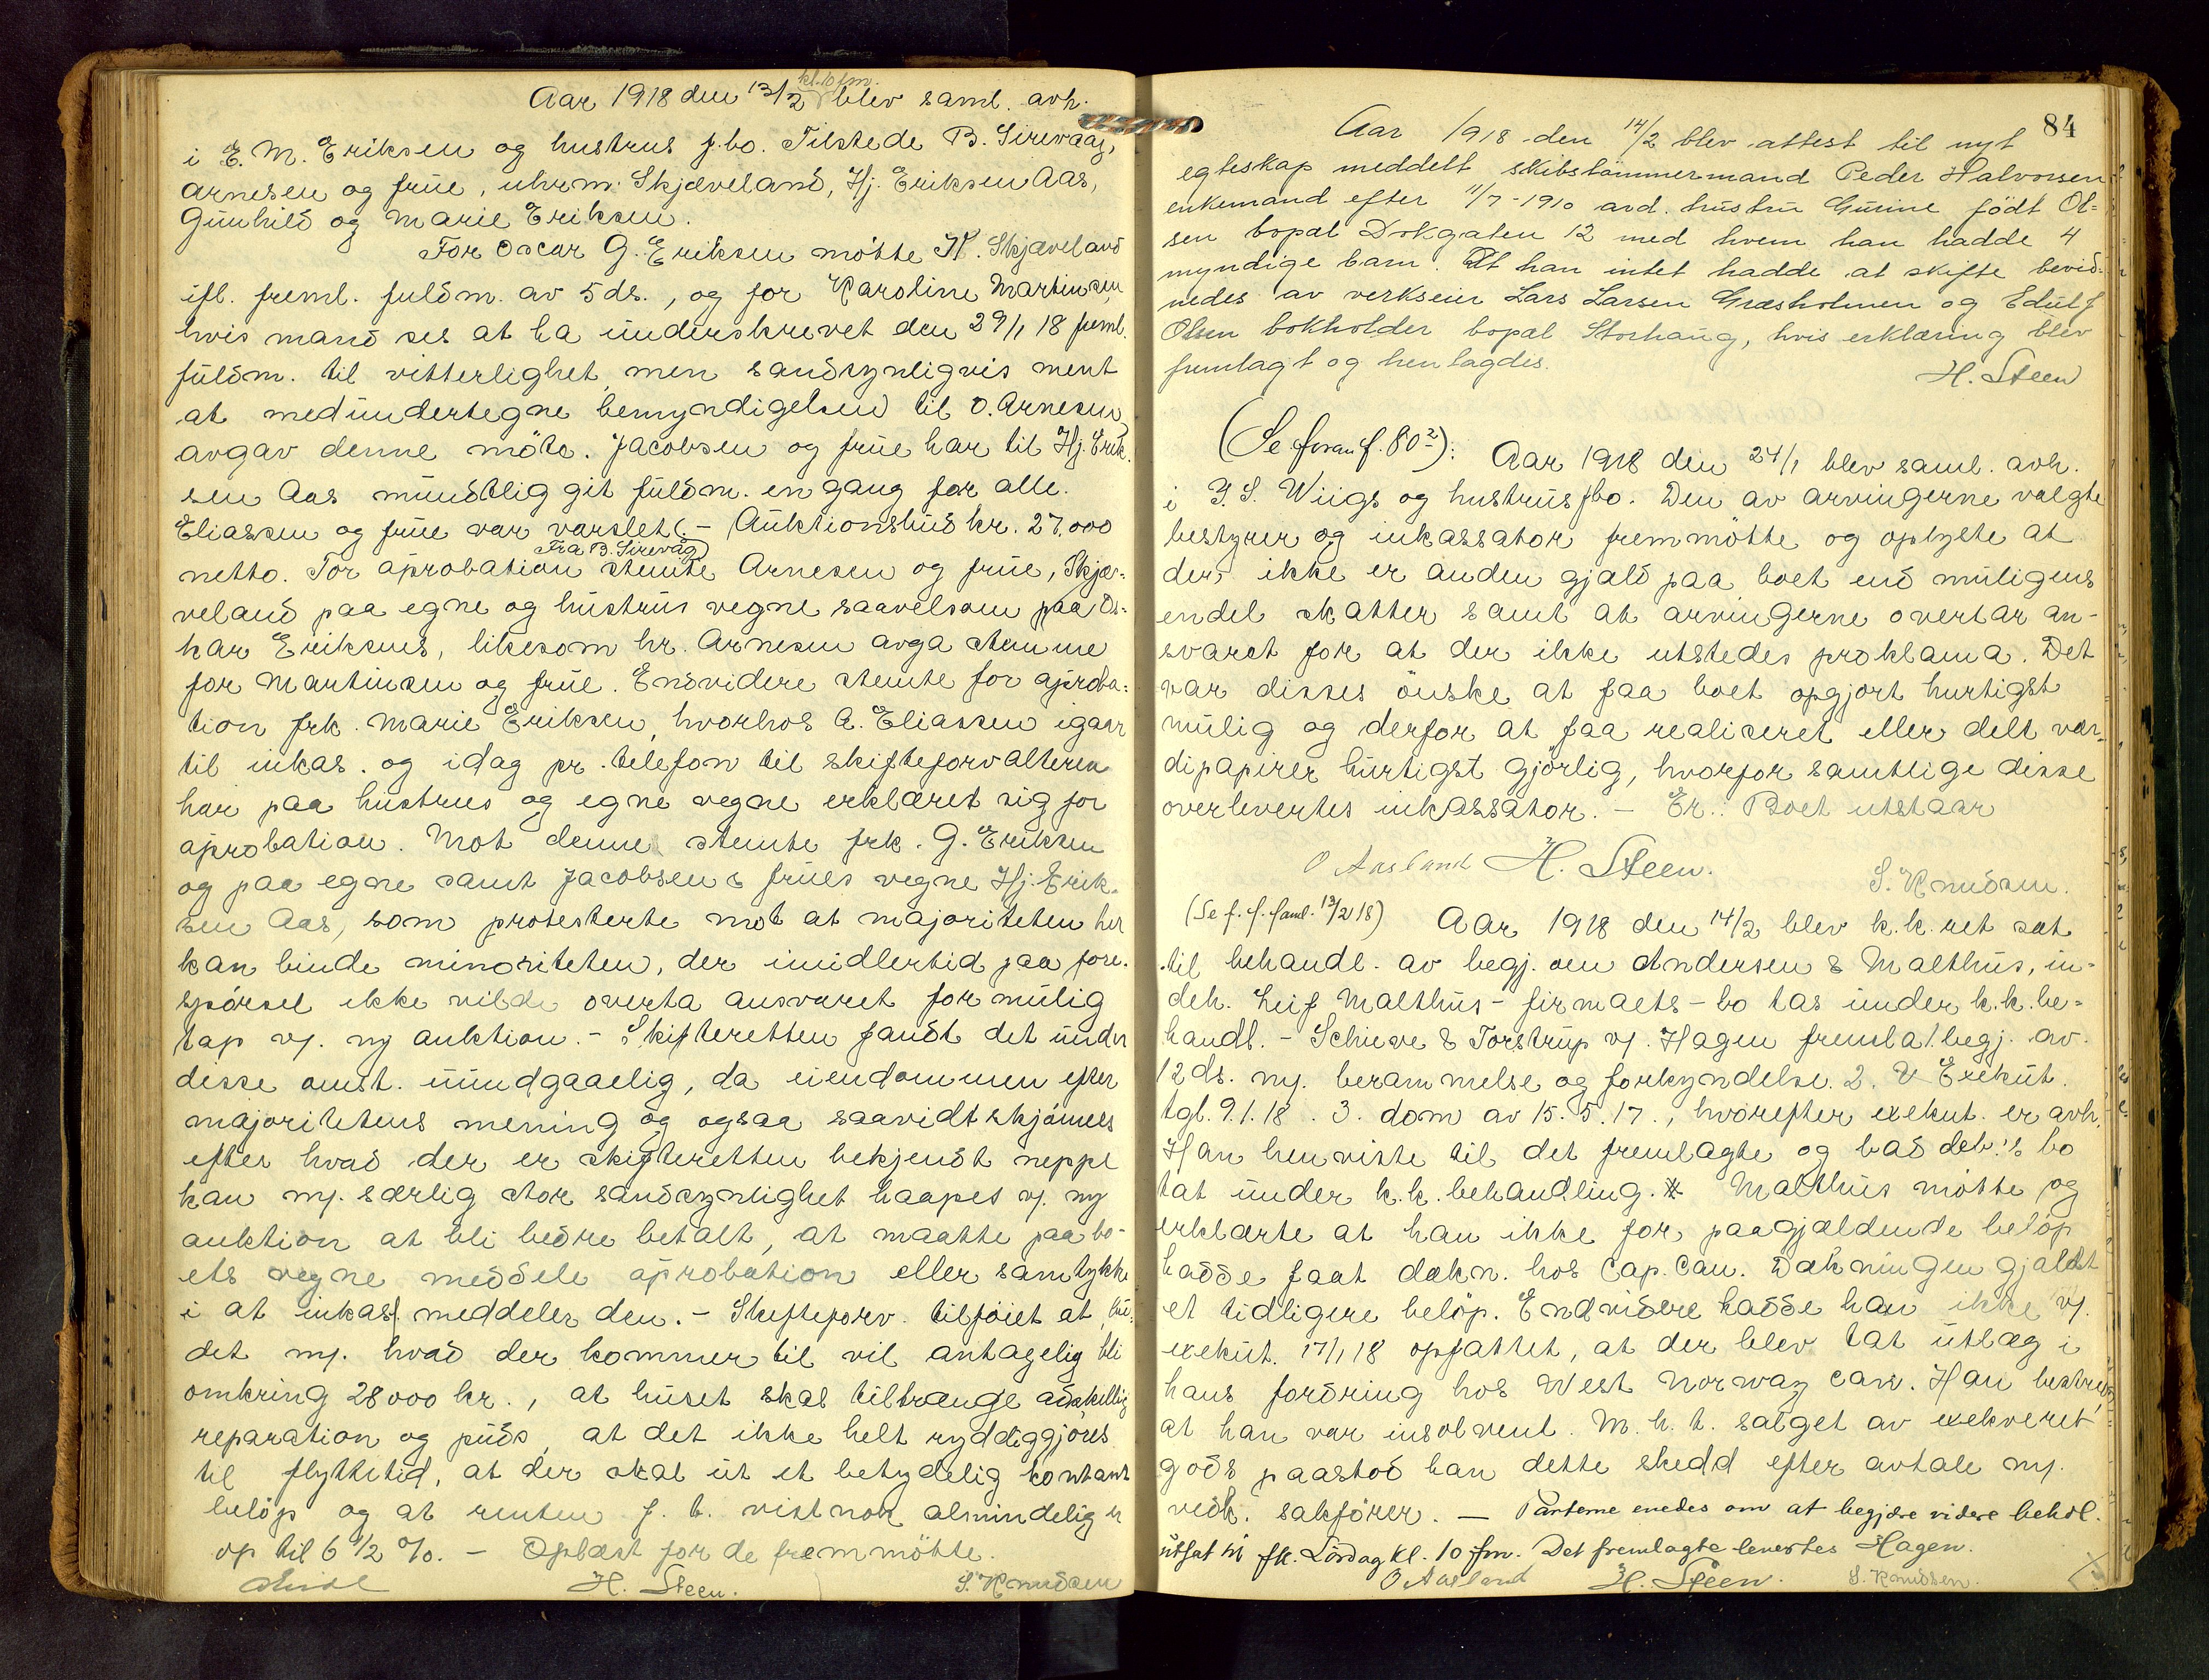 kl. 10 fm.
Aar 1918 den 13/2 blev saml. avh.
i E. M. Eriksen og hustrus f.bo. Tilstede B. Sirevaag,
Arnesen og frue, uhrm. Skjæveland, Hj. Eriksen Aas,
Gunhild og Marie Eriksen.
For Oscar G. Eriksen møtte K. Skjæveland
ifl. freml. fuldm. av 5ds., og for Karoline Martinsen
hvis mand ses at ha underskrevet den 29/1 18 freml.
fuldm. til vitterlighet men sandsynligvis ment
at medundertegne bemyndigelsen til O. Arnesen,
avgav denne møte. Jacobsen og frue har til Hj. Erik-
sen Aas mundtlig git fuldm. en gang for alle.
Eliassen og frue var varslet. - Auktionsbud kr. 27.000
Fra B. Sirevåg
netto. For aprobation stemte Arnesen og frue, Skjæ-
veland paa egne og hustrus vegne saavelsom paa Os-
kar Eriksens, likesom hr. Arnesen avga stemme
for Martinsen og frue. Endvidere stemte for aproba-
tion frk. Marie Eriksen, hvorhos A. Eliassen igaar
til inkas. og idag pr. telefon til skifteforvalteren
har paa hustrus og egne vegne erklæret sig for
aprobation. Mot denne stemte frk. G. Eriksen
og paa egne samt Jacobsen & frues vegne Hj. Erik-
sen Aas, som protesterte mot at majoriteten her
kan binde minoriteten, der imidlertid paa fore-
spørsel ikke vilde overta ansvaret for mulig
tap v/. ny auktion. - Skifteretten fandt det under
disse omst. uundgaaelig, da eiendommen efter
majoritetens mening og ogsaa saavidt skjønnes
efter hvad der er skifteretten bekjendt neppe
kan m/. særlig stor sandsynlighet haapes v/. ny
auktion at bli bedre betalt, at maatte paa bo-
ets vegne meddele aprobation eller samtykke
i at inkass. meddeler den. - Skifteforv. tilføiet at bu-
det m/. hvad der kommer til vil antagelig bli
omkring 28000 kr., at huset skal tiltrænge adskillig
reparation og puds, at det ikke helt ryddiggjøres
til flyttetid, at der skal ut et betydelig kontant
beløp og at renten f. t. vistnok almindelig er
op til 6 1/2 %. - Oplæst for de fremmøtte.
H. Steen. S. Knudsen
84
Aar 1918 den 14/2 blev attest til nyt
egteskap meddelt skibstømmermand Peder Halvorsen
enkemand efter 11/7-1910 avd. hustru Gurine født Ol-
sen bopæl Dokgaten 12 med hvem han hadde 4
myndige barn. At han intet hadde at skifte bevid-
nedes av verkseier Lars Larsen Græsholmen og Edulf
Olsen bokholder bopæl Storhaug, hvis erklæring blev
fremlagt og henlagdes.
H. Steen
(Se foran f. 80²): Aar 1918 den 24/1 blev saml. avh.
i P. S. Wiigs og hustrus fbo. Den av arvingerne valgte
bestyrer og inkassator fremmøtte og oplyste at
der ikke er anden gjæld paa boet end muligens
endel skatter samt at arvingerne overtar an-
svaret for at der ikke utstedes proklama. Det
var disses ønske at faa boet opgjort hurtigst
mulig og derfor at faa realiseret eller delt vær-
dipapirer hurtigst gjørlig, hvorfor samtlige disse
overlevertes inkassator. - Er.: Boet utstaar
O Aasland H. Steen. S. Knudsen.
(Se f. f. saml. 12/2 18) Aar 1918 den 14/2 blev k.k. ret sat
til behandl. av begj. om Andersen & Malthus, in-
deh. Leif Malthus - firmaets - bo tas under k.k. be-
handl. - Schieve & Torstrup v/. Hagen fremla 1. begj. av
12 ds. m/. berammelse og forkyndelse. 2. U Exekut.
tgl. 9.1.18. 3. dom av 15.5.17., hvorefter exekut. er avh.
Han henviste til det fremlagte og bad deb.'s bo
tat under k.k. behandling. Malthus møtte og
erklærte at han ikke for paagjældende beløp
hadde faat dækn. hos Cap. Can. Dækningen gjaldt
et tidligere beløp. Endvidere hadde han ikke v/.
exekut. 17/1 18 opfattet, at der blev tat utlæg i
hans fordring hos West Norway Can. Han bestred,
at han var insolvent. M. h. t. salget av exekveret
gods paastod han dette skedd efter avtale m/.
vedk. sakfører. - Parterne enedes om at begjære videre behdl.
utsat til fk. Lördag kl. 10 fm. Det fremlagte levertes Hagen.
O Aasland H. Steen. S. Knudsen.